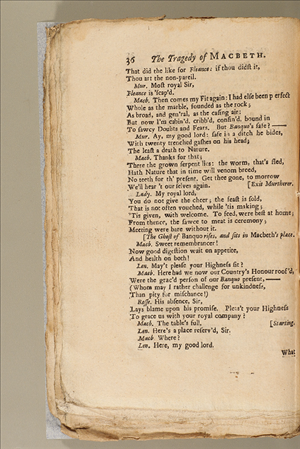 36 The Tragedy of MACBETH.
That did the like for Fleance: if thou didst it,
Thou art the non-pareil.
Mur. Most royal Sir,
Fleance is 'scap'd.
Macb. Then comes my Fit again: I had else been perfect
Whole as the marble, founded as the rock;
As broad, and gen'ral, as the casing air:
But now I'm cabin'd, cribb'd, confin'd, bound in
To sawcy Doubts and Fears. But Banquo's safe? —
Mur. Ay, my good lord: safe in a ditch he bides,
With twenty trenched gashes on his head;
The least a death to Nature.
Macb. Thanks for that;
There the grown serpent lies: the worm, that's fled,
Hath Nature that in time will venom breed,
No teeth for th' present. Get thee gone, to morrow
We'll hear 't our selves again. [Exit Murtherer.
Lady. My royal lord,
You do not give the cheer; the feast is sold,
That is not often vouched, while 'tis making;
'Tis given, with welcome. To feed, were best at home;
From thence, the sawce to meat is ceremony;
Meeting were bare without it.
[The Ghost of Banquo rises, and sits in Macbeth's place.
Macb. Sweet remembrancer!
Now good digestion wait on appetite,
And health on both!
Len. May't please your Highness sit?
Macb. Here had we now our Country's Honour roof'd,
Were the grac'd person of our Banquo present, —
(Whom may I rather challenge for unkindness,
Than pity for mischance!)
Rosse. His absence, Sir,
Lays blame upon his promise. Pleas't your Highness
To grace us with your royal company?
Macb. The table's full. [Starting.
Len. Here's a place reserv'd, Sir.
Macb. Where?
Len. Here, my good lord.
What